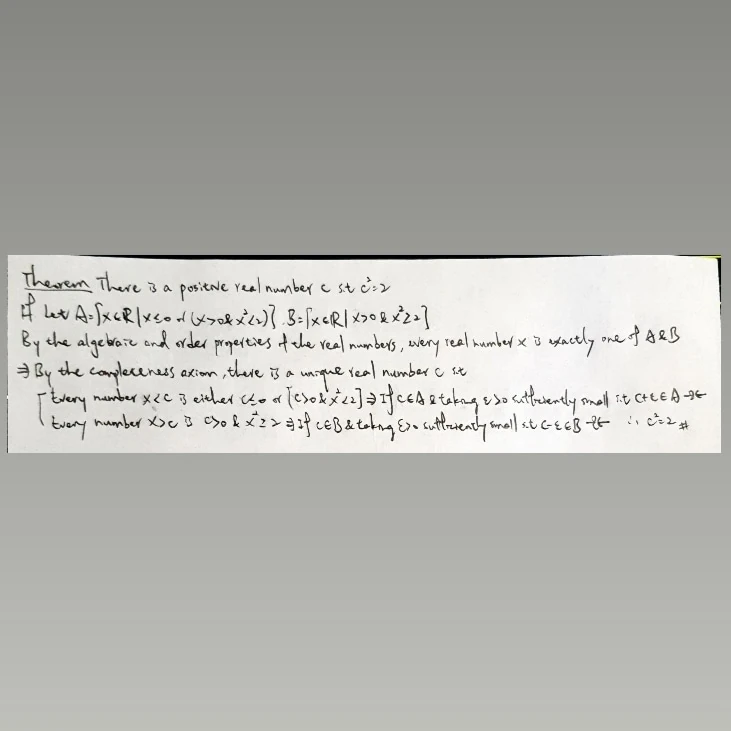 Theorem There is a positive real number c s.t c²=2
pf Let A={x∈R|x≤0 or (x>0&x²<2)}. B={x∈R|x>0&x²≥2}
By the algebraic and order properties of the real numbers, every real number x is exactly one of A&B
⇒ By the completeness axiom, there is a unique real number c s.t
Every number x<c is either c≤0 or [c>0&x²<2] ⇒ If c∈A & taking ε>0 sufficiently small s.t c+ε∈A →←
Every number x>c is c>0 & x²≥2 ⇒ If c∈B & taking ε>0 sufficiently small s.t c-ε∈B →← ∴ c²=2 #